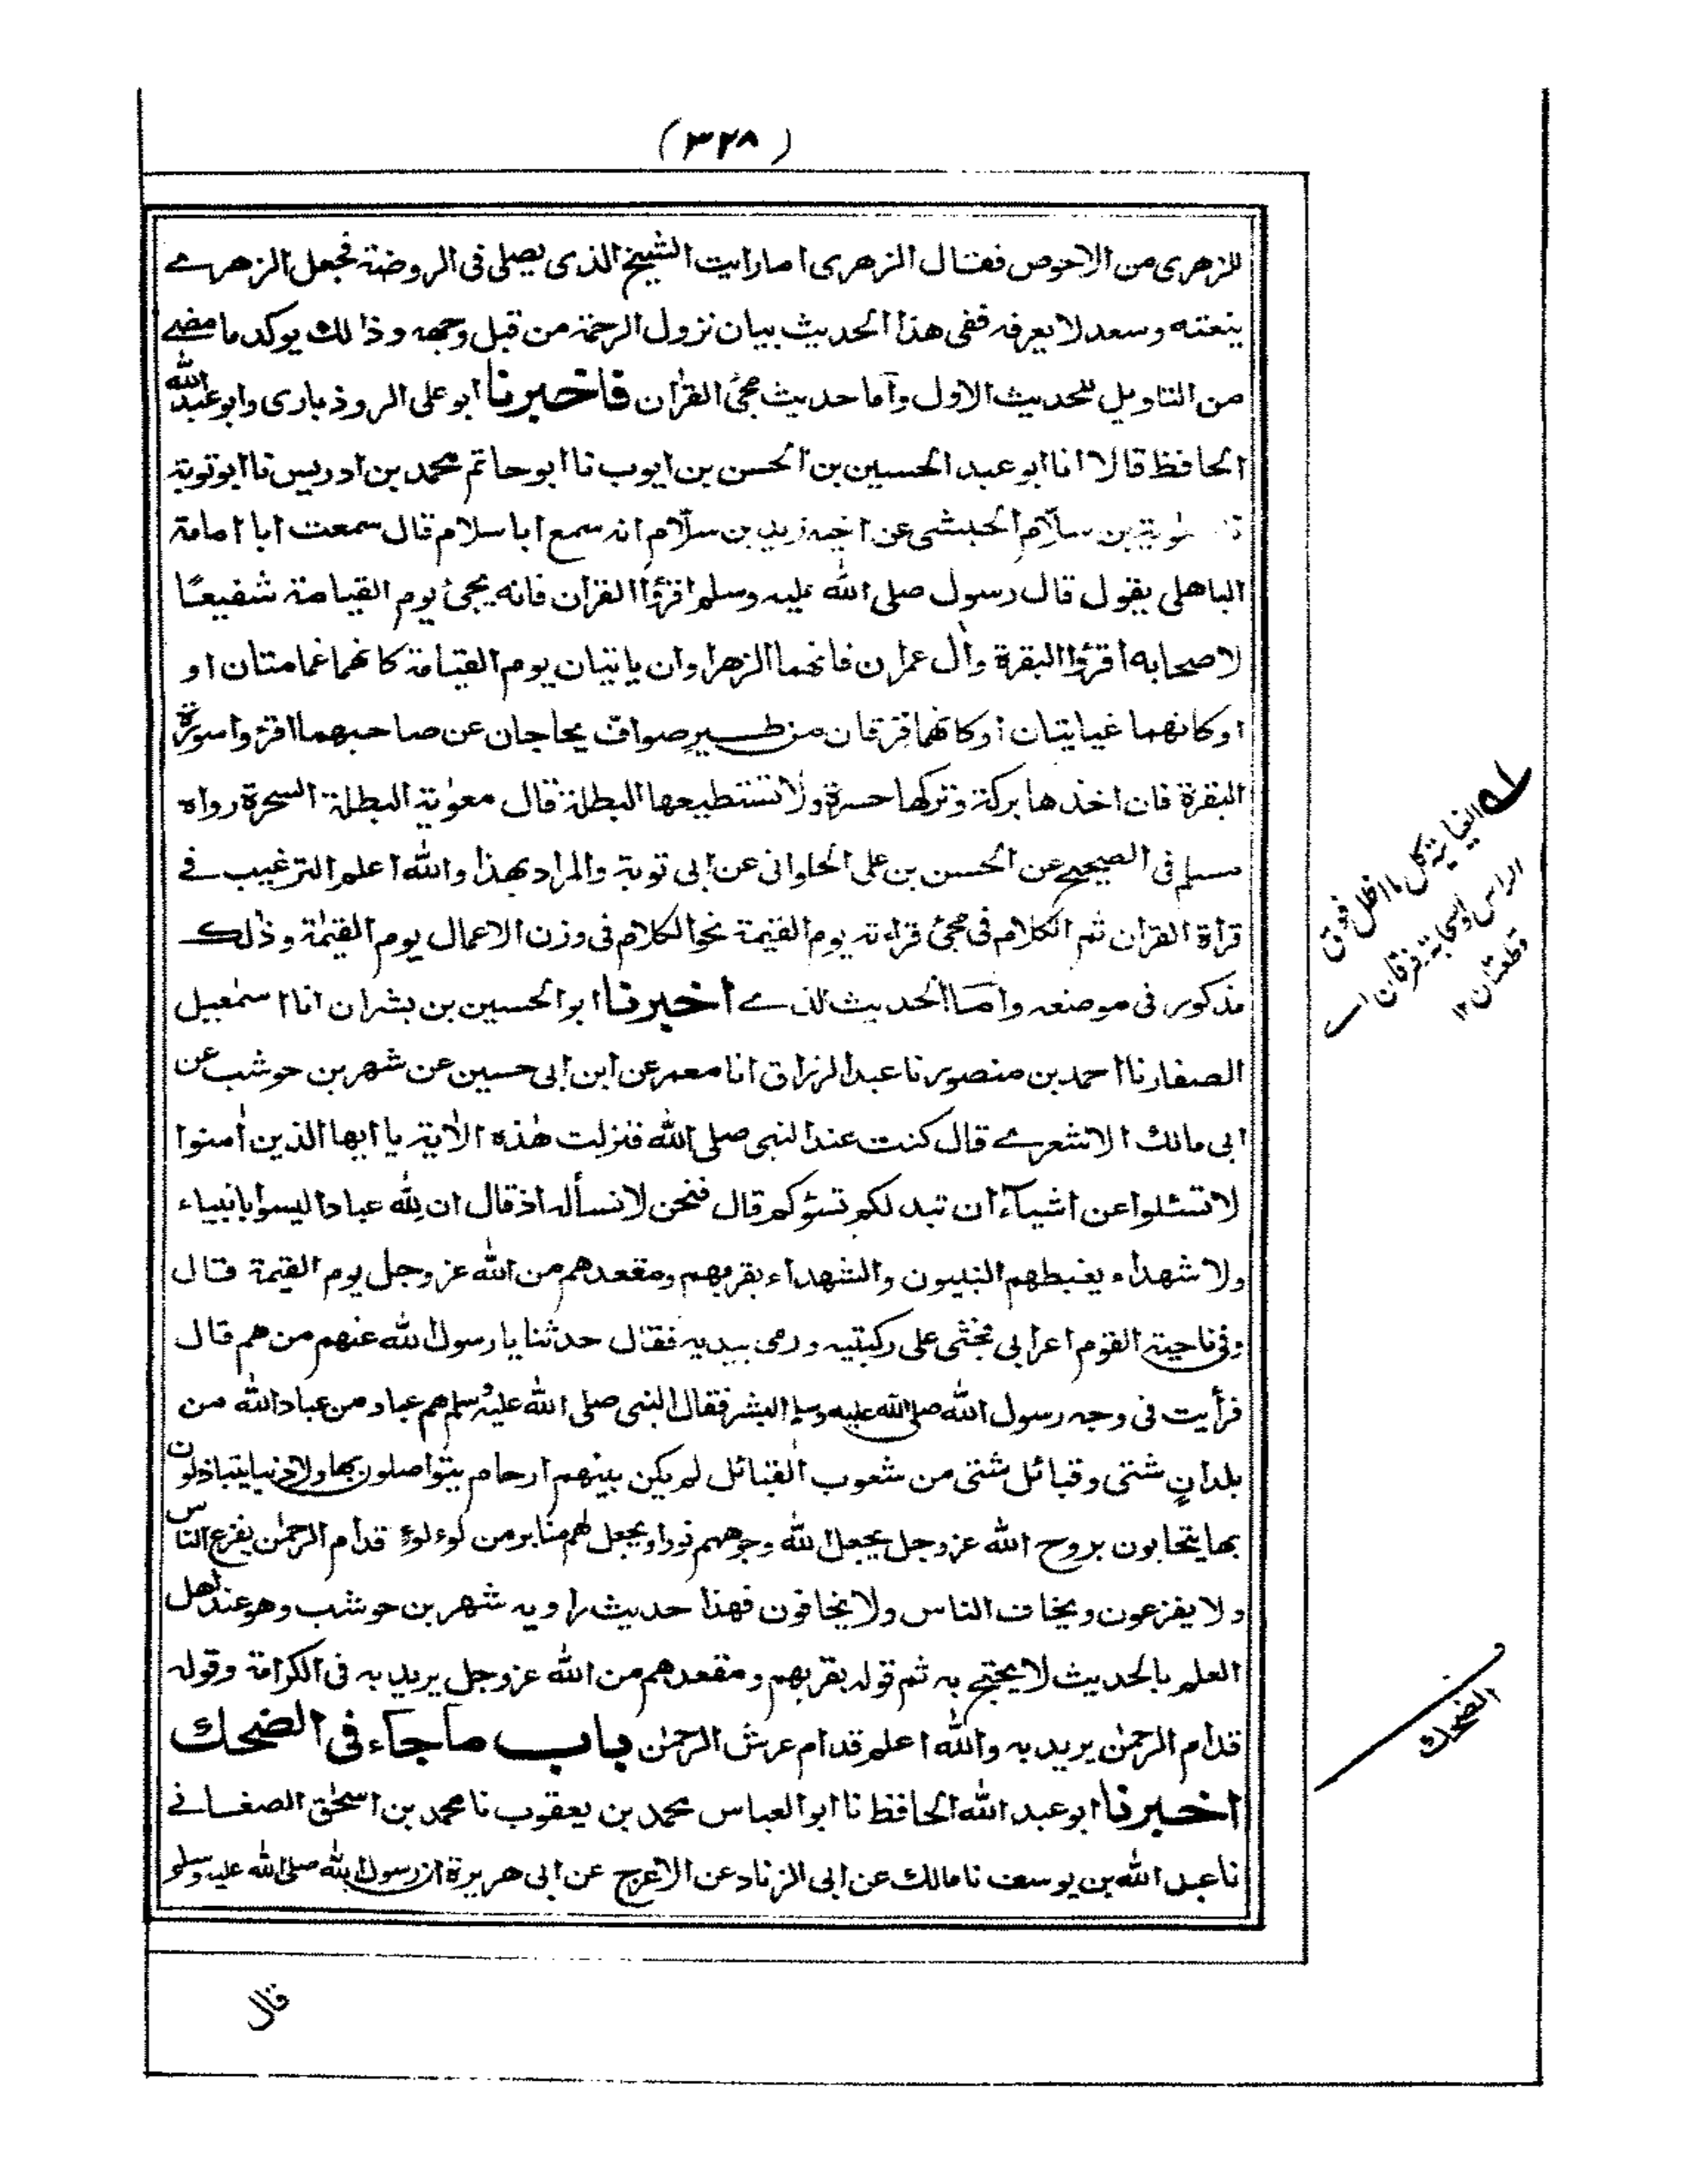 (٣٢٨)
للزهرى من الاحوص فقال الزهرى اما رايت الشيخ الذى يصلى فى الروضة فجعل الزهرے
ينعته وسعد لا يعرفه ففى هذا الحديث بيان نزول الرحمة من قبل وجهه وذالك يوكد ما مضے
من التاويل للحديث الاول وآما حديث مجئ القرأن فاخبرنا ابو على الروذبارى وابو عبدالله
الحافظ قالا انا ابو عبد الحسين بن الحسن بن ايوب نا ابو حاتم محمد بن ادريس نا ابو توبة
بن سلّام الحبشى عن اخيه زيد بن سلّام انه سمع ابا سلام قال سمعت ابا امامة
الباهلى يقول قال رسول صلى الله عليه وسلم اقرؤا القرأن فانه يجئ يوم القيامة شفيعًا
لاصحابه اقرؤا البقرة وأل عمران فانهما الزهراوان ياتيان يوم القيامة كانهما غمامتان او
اوكانهما غيايتان اوكانهما فِرقان من طيرٍ صوافّ يحاجان عن صاحبهما اقرؤا سورة
البقرة فان اخذها بركة وتركها حسرة ولا تستطيعها البطلة قال معوٰية البطلة السحرة رواه
مسلم فى الصحيح عن الحسن بن على الحلوانى عن ابى توبة والمراد بهذا والله اعلم الترغيب فے
قرأة القران ثم الكلام فى مجئ قراءته يوم القيٰمة نحو الكلام فى وزن الاعمال يوم القيٰمة وذٰلك
مذكور فى موضعه وامّا الحديث الذے اخبرنا ابو الحسين بن بشران انا اسمٰعيل
الصفار نا احمد بن منصور نا عبد الرزاق انا معمر عن ابن ابى حسين عن شهر بن حوشب عن
ابى مالك الاشعرے قال كنت عند النبى صلى الله فنزلت هٰذه الأية يا ايها الذين أمنوا
لا تسئلوا عن اشيآء ان تبد لكم تسؤكم قال فنحن لا نسأله اذ قال ان لله عبادا ليسوا بانبياء
ولا شهداء يغبطهم النبيون والشهداء بقربهم ومقعدهم من الله عز وجل يوم القيٰمة قال
وفى ناحية القوم اعرابى فجثى على ركبتيه ورمى بيديه فقال حدثنا يا رسول الله عنهم من هم قال
فرأيت فى وجه رسول الله صلى الله عليه وسلم البشر فقال النبى صلى الله عليه وسلم هم عباد من عباد الله من
بلدانٍ شتى وقبائل شتى من شعوب القبائل لم يكن بينهم ارحام يتواصلون بها ولا دنيا يتباذلون
بها يتحابون بروح الله عز وجل يجعل الله وجوههم نورا ويجعل لهم منابر من لوءلوءٍ قدام الرحمٰن يفزع الناس
ولا يفزعون ويخاف الناس ولا يخافون فهذا حديث راويه شهر بن حوشب وهو عند اهل
العلم بالحديث لا يحتج به ثم قوله بقربهم ومقعدهم من الله عز وجل يريد به فى الكرامة وقوله
قدام الرحمٰن يريد به والله اعلم قدام عرش الرحمٰن باب ما جآء فى الضحك
اخبرنا ابو عبد الله الحافظ نا ابو العباس محمد بن يعقوب نا محمد بن اسحٰق الصغانے
نا عبد الله بن يوسف نا مالك عن ابى الزناد عن الاعرج عن ابى هريرة ان رسول الله صلى الله عليه وسلم
له الغياية كل ما اظل فوق
الراس اوسحابة فرقان اے
قطعتان ١٢
الضحك
قال